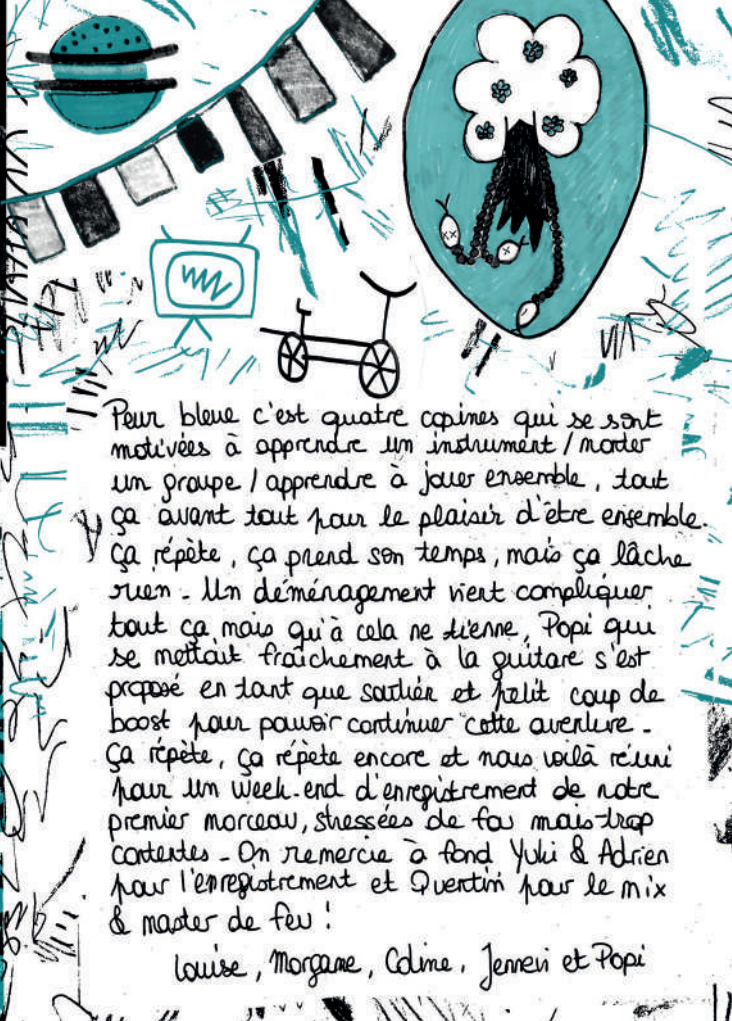 Peur bleue c'est quatre copines qui se sont
motivées à apprendre un instrument / monter
un groupe / apprendre à jouer ensemble, tout
ça avant tout pour le plaisir d'être ensemble.
ça répète, ça prend son temps, mais ça lâche
rien - Un déménagement vient compliquer
tout ça mais qu'à cela ne tienne, Popi qui
se mettait fraîchement à la guitare s'est
proposé en tant que soutien et petit coup de
boost pour pouvoir continuer cette aventure -
ça répète, ça répète encore et nous voilà réuni
pour un week-end d'enregistrement de notre
premier morceau, stressées de fou mais trop
contentes - On remercie à fond Yuki & Adrien
pour l'enregistrement et Quentin pour le mix
& master de feu !
Louise, Morgane, Coline, Jenneri et Popi